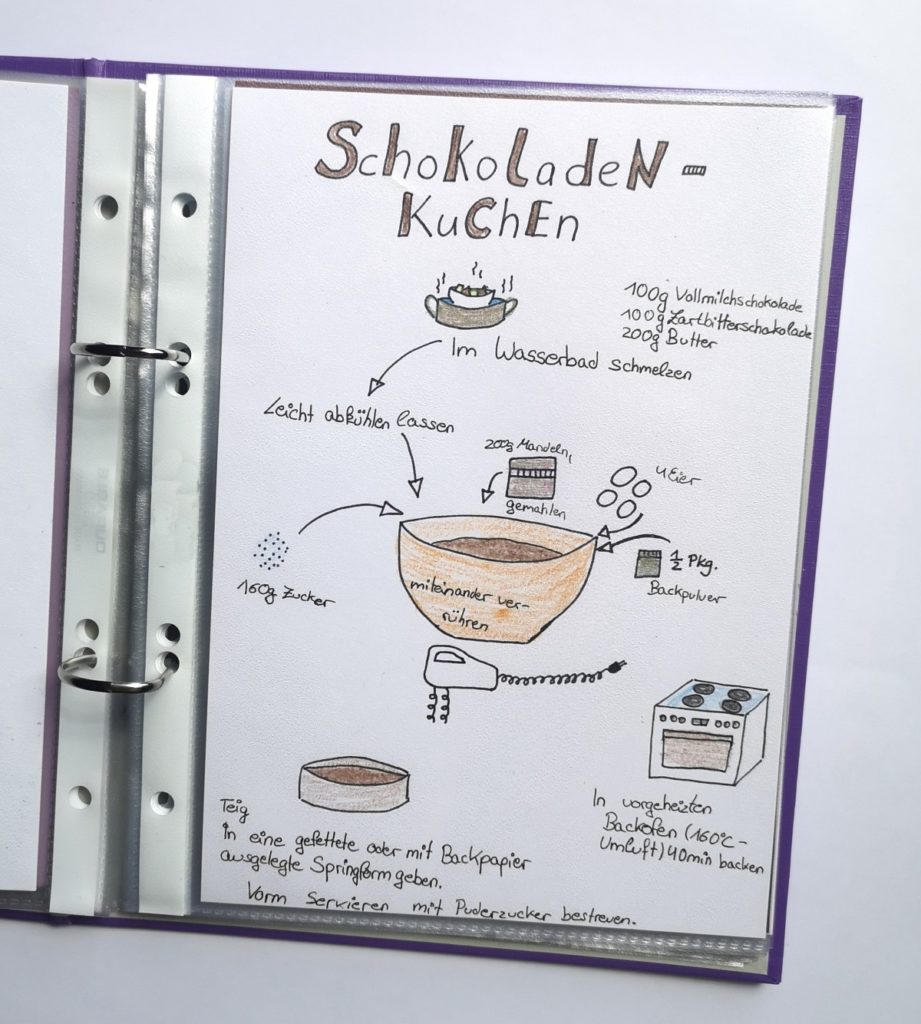 Schokoladen-
Kuchen
100g Vollmilchschokolade
100g Zartbitterschokolade
200g Butter
Im Wasserbad schmelzen
Leicht abkühlen lassen
200g Mandeln,
gemahlen
4 Eier
1/2 Pkg.
Backpulver
160g Zucker
miteinander ver-
rühren
In vorgeheizten
Backofen (160°C-
Umluft) 40min backen
Teig
in eine gefettete oder mit Backpapier
ausgelegte Springform geben.
Vorm Servieren mit Puderzucker bestreuen.